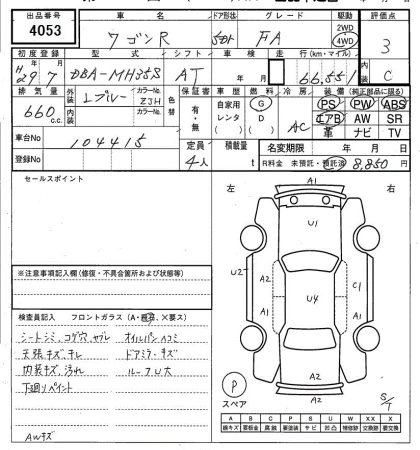 出品番号 車名 ドア形状 グレード 駆動 評価点
4053 ワゴンR 5Dr FA 2WD 4WD 3
初度登録 型式 シフト 車検 走行(km・マイル) 内装
H29年7月 DBA-MH35S AT 年 月 66,551 C
排気量 外装 Lブルー カラーNo. ZJH 色替 保証書 車歴 燃料 冷房 装備(純正部品に限る)
660 c.c. 内装 カラーNo. 有・無 自家用 レンタ G D AC PS PW ABS
エアB AW SR
革 ナビ TV
車台No 104415 定員 積載量 名変期限 年 月 日
登録No 4人 t R料金 未預託・預託済 8,850円
セールスポイント
左 右
A1
U1
U2 A2 C1
U4
A1 A1
A2
A2
P
スペア
S/T
※注意事項記入欄(修復・不具合箇所および状態等)
検査員記入 フロントガラス(A・飛石、×要ス)
シートシミ、コゲ穴、ヤブレ オイルパンヘコミ
天張キズ、チレ ドアミラーキズ
内装キズ、汚れ ルーフU大
下廻りペイント
AWキズ
A B C P S U W XX X
線キズ 要板金 腐蝕 要塗装 サビ 凹凸 補修跡 交換跡 要交換